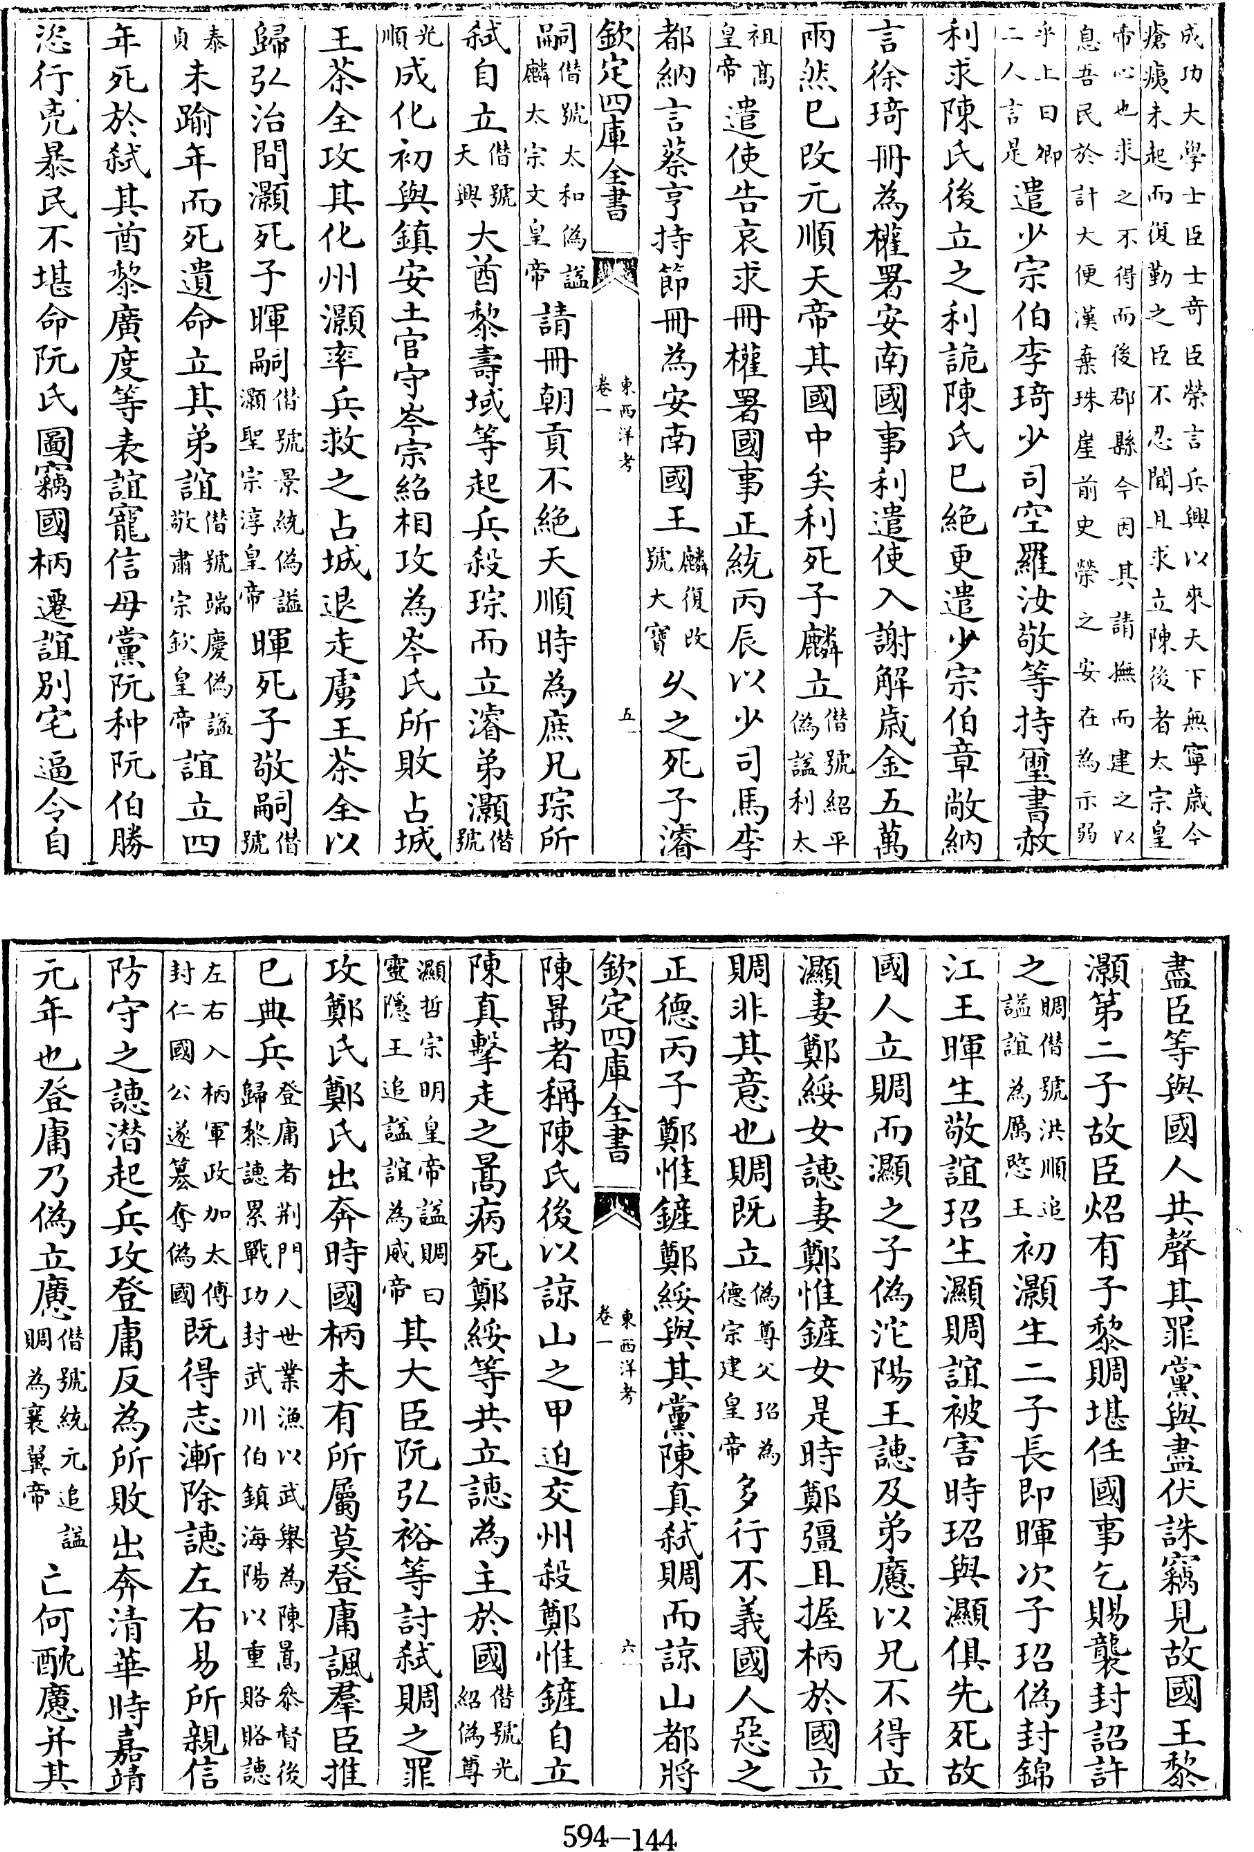 成功大學士臣士奇臣榮言兵興以來天下無寧歲今
瘡痍未起而復勤之臣不忍聞且求立陳後者太宗皇
帝心也求之不得而後郡縣今因其請撫而建之以
息吾民於計大便漢棄珠崖前史榮之安在為示弱
乎上曰卿二人言是遣少宗伯李琦少司空羅汝敬等持璽書赦
利求陳氏後立之利詭陳氏已絶更遣少宗伯章敞納
言徐琦冊為權署安南國事利遣使入謝解歲金五萬
兩然已改元順天帝其國中矣利死子麟立僭號紹平偽諡利太
祖髙皇帝遣使告哀求冊權署國事正統丙辰以少司馬李
都納言蔡亨持節冊為安南國王麟復改號大寶乆之死子濬
欽定四庫全書 東西洋考 卷一 五
嗣僭號太和偽諡麟太宗文皇帝請冊朝貢不絶天順時為庶兄琮所
弒自立僭號天興大酋黎壽域等起兵殺琮而立濬弟灝僭號
光順成化初與鎮安土官守岑宗紹相攻為岑氏所敗占城
王茶全攻其化州灝率兵救之占城退走虜王茶全以
歸弘治間灝死子暉嗣僭號景統偽諡灝聖宗淳皇帝暉死子敬嗣僭號
泰貞未踰年而死遺命立其弟誼僭號端慶偽諡敬肅宗欽皇帝誼立四
年死於弒其酋黎廣度等表誼寵信母黨阮种阮伯勝
恣行兇暴民不堪命阮氏圖竊國柄遷誼别宅逼令自
盡臣等與國人共聲其罪黨與盡伏誅竊見故國王黎
灝第二子故臣炤有子黎賙堪任國事乞賜襲封詔許
之賙僭號洪順追諡誼為厲愍王初灝生二子長即暉次子玿偽封錦
江王暉生敬誼玿生灝賙誼被害時玿與灝俱先死故
國人立賙而灝之子偽沱陽王譓及弟懬以兄不得立
灝妻鄭綏女譓妻鄭惟鏟女是時鄭彊且握柄於國立
賙非其意也賙既立偽尊父玿為德宗建皇帝多行不義國人惡之
正德丙子鄭惟鏟鄭綏與其黨陳真弒賙而諒山都將
欽定四庫全書 東西洋考 卷一 六
陳暠者稱陳氏後以諒山之甲迫交州殺鄭惟鏟自立
陳真擊走之暠病死鄭綏等共立譓為主於國僭號光紹偽尊
灝哲宗明皇帝諡賙曰靈隱王追諡誼為威帝其大臣阮弘裕等討弒賙之罪
攻鄭氏鄭氏出奔時國柄未有所屬莫登庸諷羣臣推
已典兵登庸者荆門人世業漁以武舉為陳暠叅督後歸黎譓累戰功封武川伯鎮海陽以重賂賂譓
左右入柄軍政加太傅封仁國公遂簒奪偽國既得志漸除譓左右易所親信
防守之譓潛起兵攻登庸反為所敗出奔清華時嘉靖
元年也登庸乃偽立懬僭號統元追諡賙為襄翼帝亡何酖懬并其
594—144